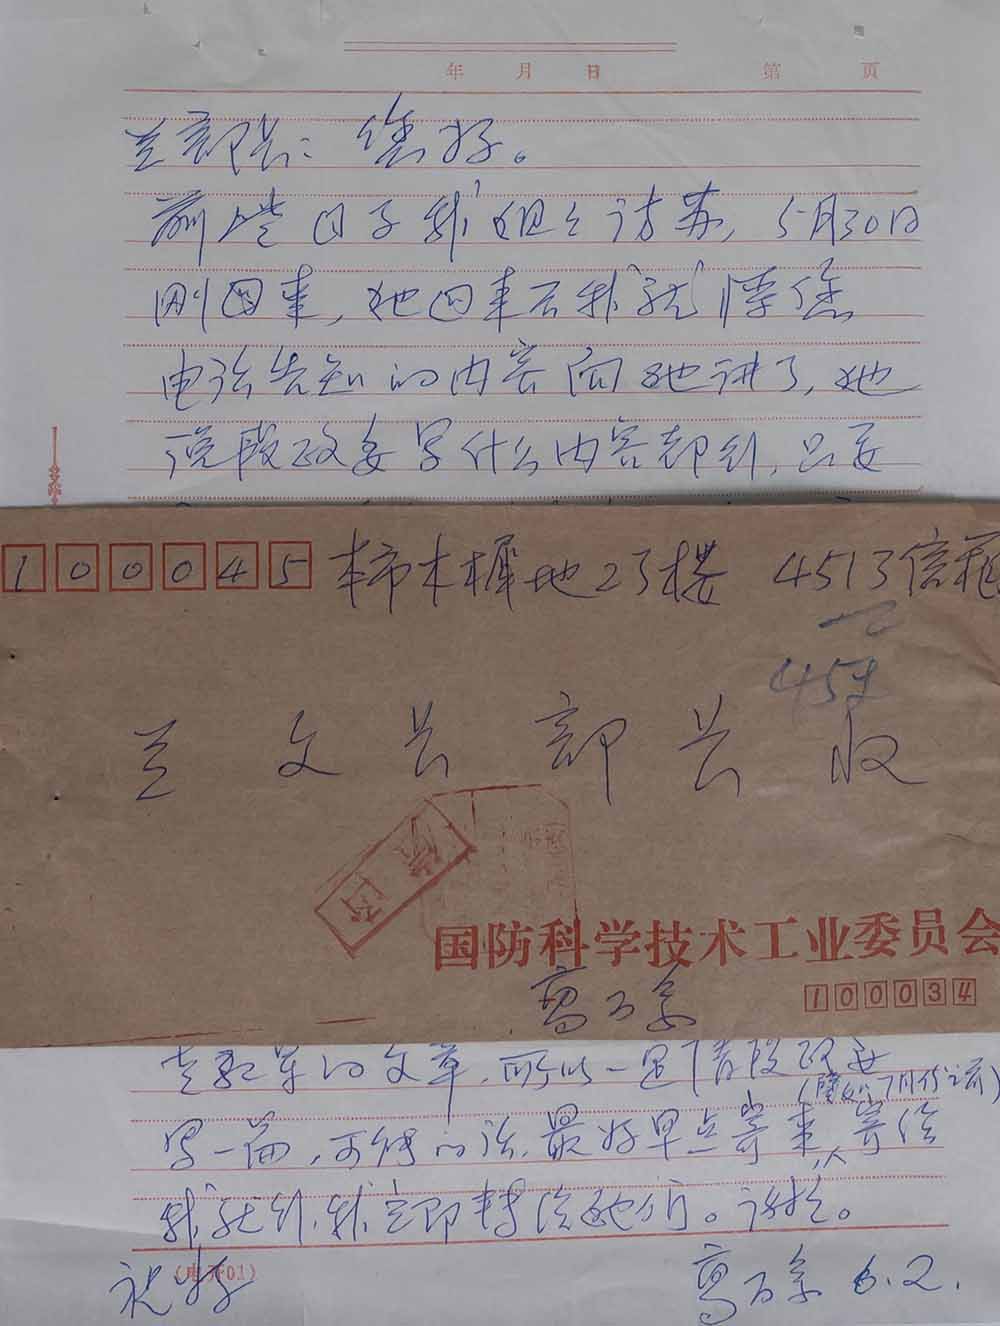 年 月 日 第 页
兰部长：您好。
前些日子我姐去访苏，5月30日
刚回来，她回来后我就将您
电话告知的内容向她讲了，她
说段政委写什么内容都行，只要
100045 本市木樨地23楼 4513信箱
兰文长部长收
国防科学技术工业委员会
高万家
100034
老红军的文章，所以一定请段政委
写一篇，可能的话，最好早点寄来，寄给
(7月份之前)
我就行，我立即转给她们。谢谢。
祝好
(电开01)
高万家 6.2.